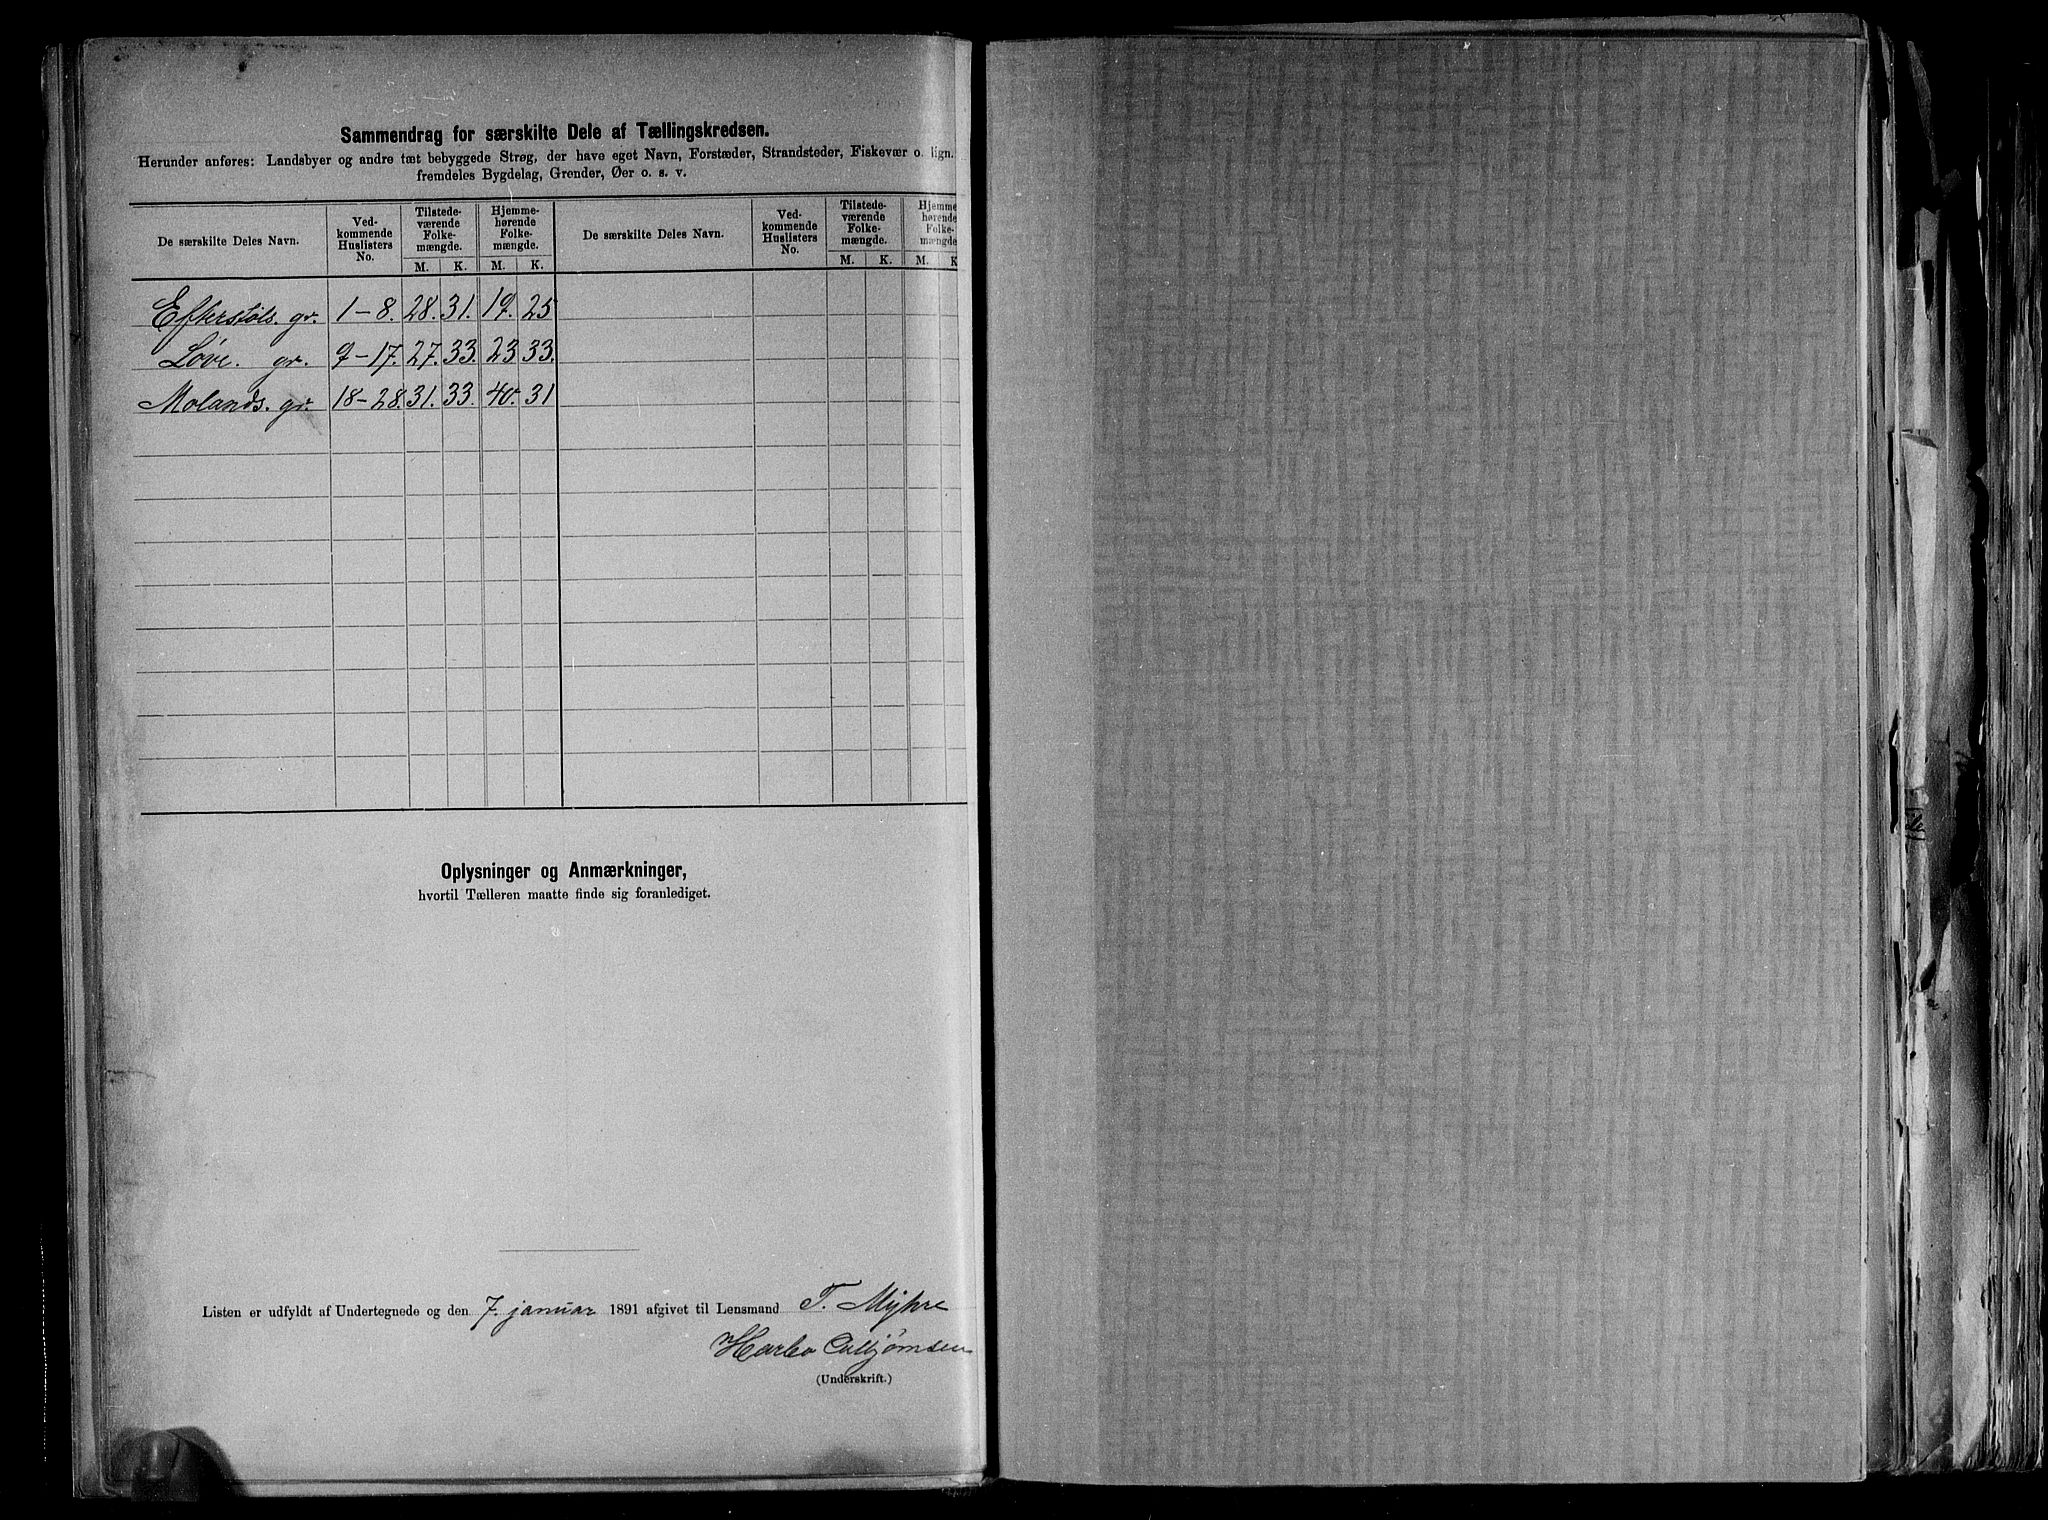 Sammendrag for særskilte Dele af Tællingskredsen.
Herunder anføres: Landsbyer og andre tæt bebyggede Strøg, der have eget Navn, Forstæder, Strandsteder, Fiskevær o. lign.
fremdeles Bygdelag, Grender, Øer o. s. v.
De særskilte Deles Navn. Ved-kommende Huslisters No. Tilstede-værende Folke-mængde. Hjemme-hørende Folke-mængde. De særskilte Deles Navn. Ved-kommende Huslisters No. Tilstede-værende Folke-mængde. Hjemme-hørende Folke-mængde
M. K. M. K. M. K. M. K
Efterstøls. gr. 1-8. 28. 31. 19. 25
Løve. gr. 9-17. 27. 33. 23 33.
Molands. gr. 18-28. 31. 33. 40. 31
Oplysninger og Anmærkninger,
hvortil Tælleren maatte finde sig foranlediget.
Listen er udfyldt af Undertegnede og den 7. januar 1891 afgivet til Lensmand T. Myhre
(Underskrift.)